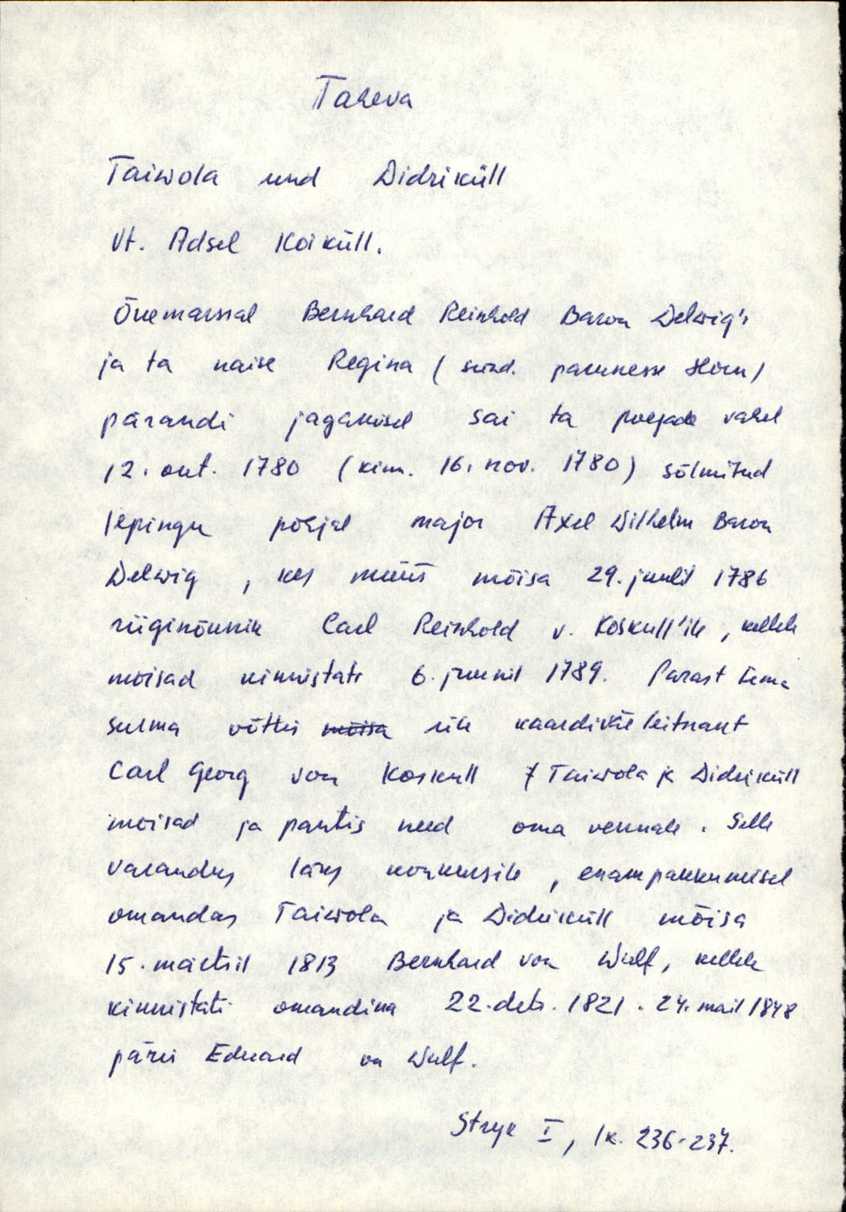 Taheva
Taiwola und Didriküll
Vt. Adsel Koiküll.
Õuemarssal Bernhard Reinhold Baron Delwig'i
ja ta naise Regina (sünd. parunesse
pärandi jagamisel sai ta poegade vahel
12. okt. 1780 (kinn. 16. nov. 1780) sõlmitud
lepingu põhjal major Axel Wilhelm Baron
Delwig, kes müüs mõisa 29. juulil 1786
riiginõunik Carl Reinhold v. Koskull'ile, kellele
mõisad kinnistati 6. juunil 1789. Pärast tema
surma võttis mõisa üle kaardiväe leitnant
Carl Georg von Koskull Taiwola ja Didriküll
mõisad ja pantis need oma vennale. Selle
varandus läks konkursile, enampakkumisel
omandas Taiwola ja Didriküll mõisa
15. märtsil 1813 Bernhard von Wulf, kellele
kinnistati omandina 22. dets. 1821. 24. mail 1848
päris Eduard von Wulf.
Stryk I, lk. 236-237.